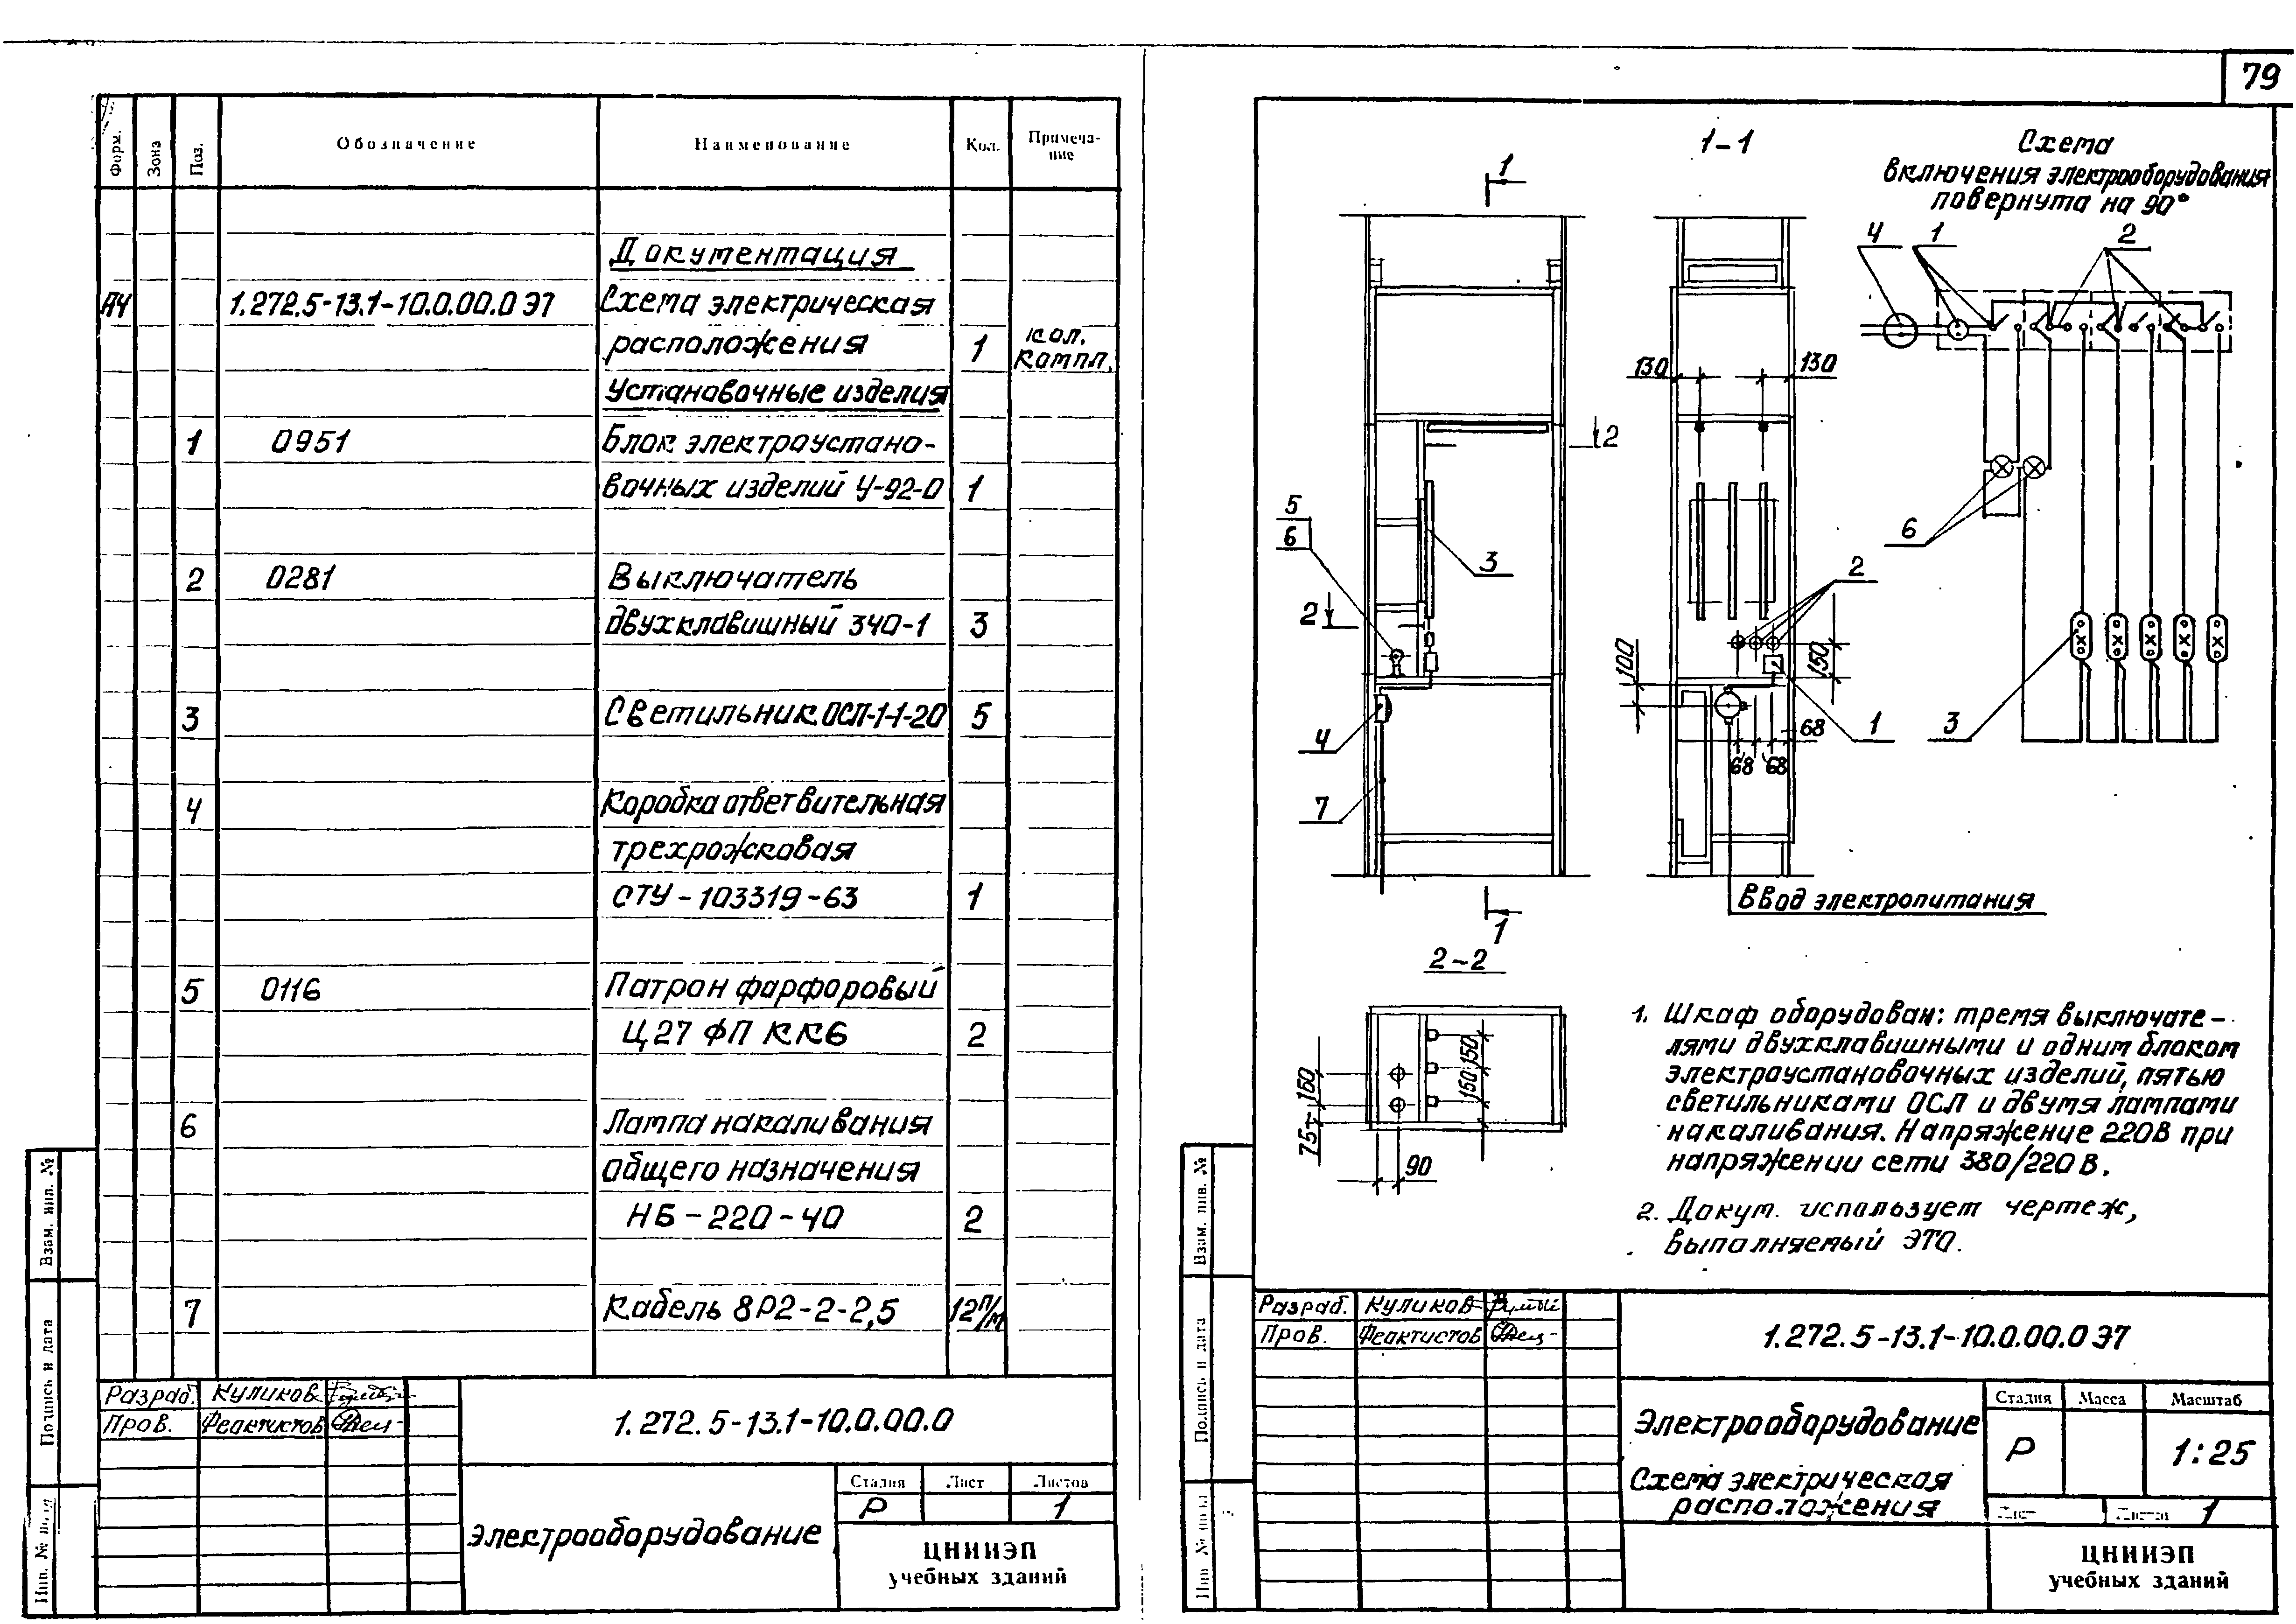 79
Форм.
Зона
Поз.
Обозначение
Наименование
Кол.
Примеча-
ние
Документация
А4 1.272.5-13.1-10.0.00.0 Э7 Схема электрическая
расположения 1 кол.
компл.
Установочные изделия
1 0951 Блок электроустано-
вочных изделий У-92-0 1
2 0281 Выключатель
двухклавишный 340-1 3
3 Светильник ОСЛ-1-1-20 5
4 Коробка ответвительная
трехрожковая
ОТУ-103319-63 1
5 0116 Патрон фарфоровый
Ц27 ФП КК6 2
6 Лампа накаливания
общего назначения
НБ-220-40 2
7 Кабель 8Р2-2-2,5 12 п/м
Взам. инв. №
Подпись и дата
Инв. № подл
Разраб. Куликов
Пров. Феактистов
1.272.5-13.1-10.0.00.0
Электрооборудование
Стадия Лист Листов
Р 1
ЦНИИЭП
учебных зданий
1
1-1
Схема
включения электрооборудования
повернута на 90°
4 1 2
130 130
2
5
6
3
2
2
6
100
150
4
68
1
3
68 68
7
Ввод электропитания
1
2-2
150
150
160
75
90
1. Шкаф оборудован: тремя выключате-
лями двухклавишными и одним блоком
электроустановочных изделий, пятью
светильниками ОСЛ и двумя лампами
накаливания. Напряжение 220В при
напряжении сети 380/220 В.
2. Докум. использует чертеж,
выполняемый ЭТО.
Взам. инв. №
Подпись и дата
Инв № подл
Разраб. Куликов
Пров. Феактистов
1.272.5-13.1-10.0.00.0 Э7
Электрооборудование
Схема электрическая
расположения
Стадия Масса Масштаб
Р 1:25
Лист Листов 1
ЦНИИЭП
учебных зданий